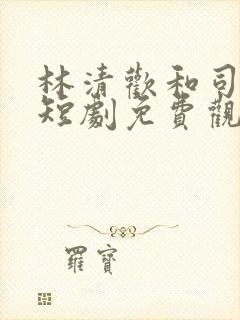 林清歡和司
短劇免費觀
羅寶